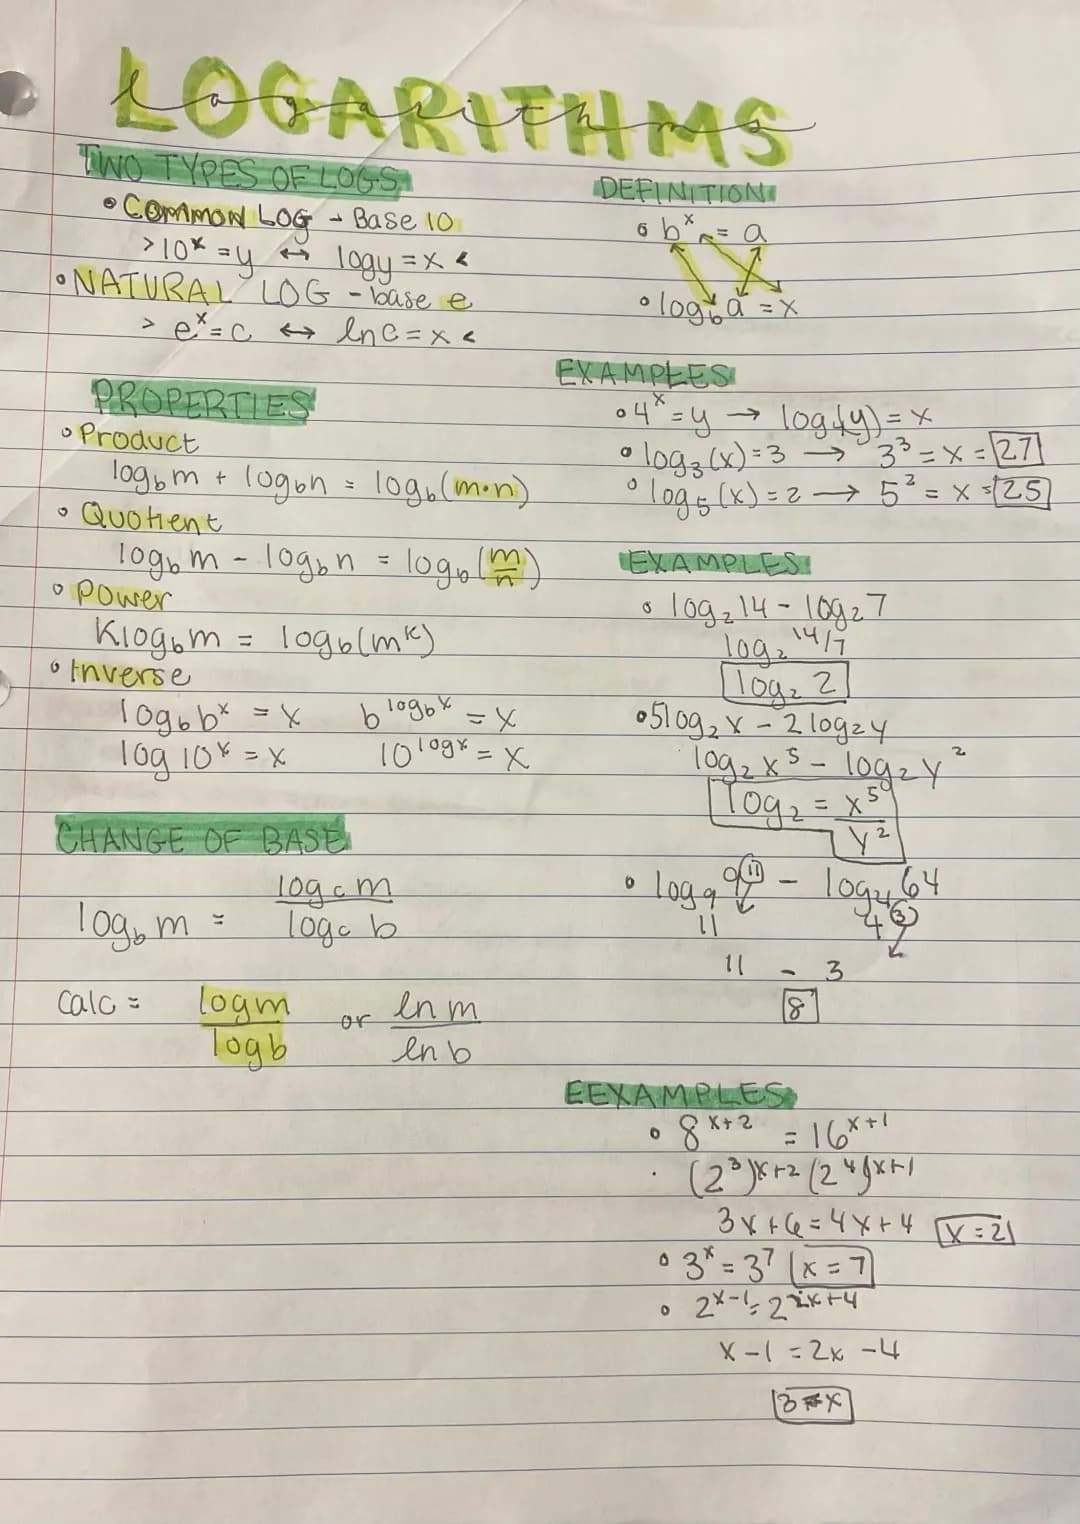 LOGARITHMS
logarithms
TWO TYPES OF LOGS
• COMMON LOG - Base 10
> 10ˣ = y ↔ log y = x <
• NATURAL LOG - base e
> eˣ = c ↔ ln c = x <
PROPERTIES
• Product
log_b m + log_b n = log_b (m·n)
• Quotient
log_b m - log_b n = log_b (m/n)
• Power
K log_b m = log_b (mᴷ)
• Inverse
log_b bˣ = x b^(log_b x) = x
log 10ˣ = x 10^(log x) = x
CHANGE OF BASE
log_b m = log_c m / log_c b
calc = log m / log b or ln m / ln b
DEFINITION
• bˣ = a
• log_b a = x
EXAMPLES
• 4ˣ = y → log₄(y) = x
• log₃(x) = 3 → 3³ = x = 27
• log₅(x) = 2 → 5² = x = 25
EXAMPLES
• log₂ 14 - log₂ 7
log₂ 14/7
log₂ 2
• 5 log₂ x - 2 log₂ y
log₂ x⁵ - log₂ y²
log₂ = x⁵/y²
• log₉ 9¹¹ - log₄ 64
11 4³
11 - 3
8
EEXAMPLES
• 8ˣ⁺² = 16ˣ⁺¹
· (2³)ˣ⁺² (2⁴)ˣ⁺¹
3x + 6 = 4x + 4 x = 2
• 3ˣ = 3⁷ x = 7
• 2ˣ⁻¹ = 2²ˣ⁺⁴
x - 1 = 2x - 4
3 = x